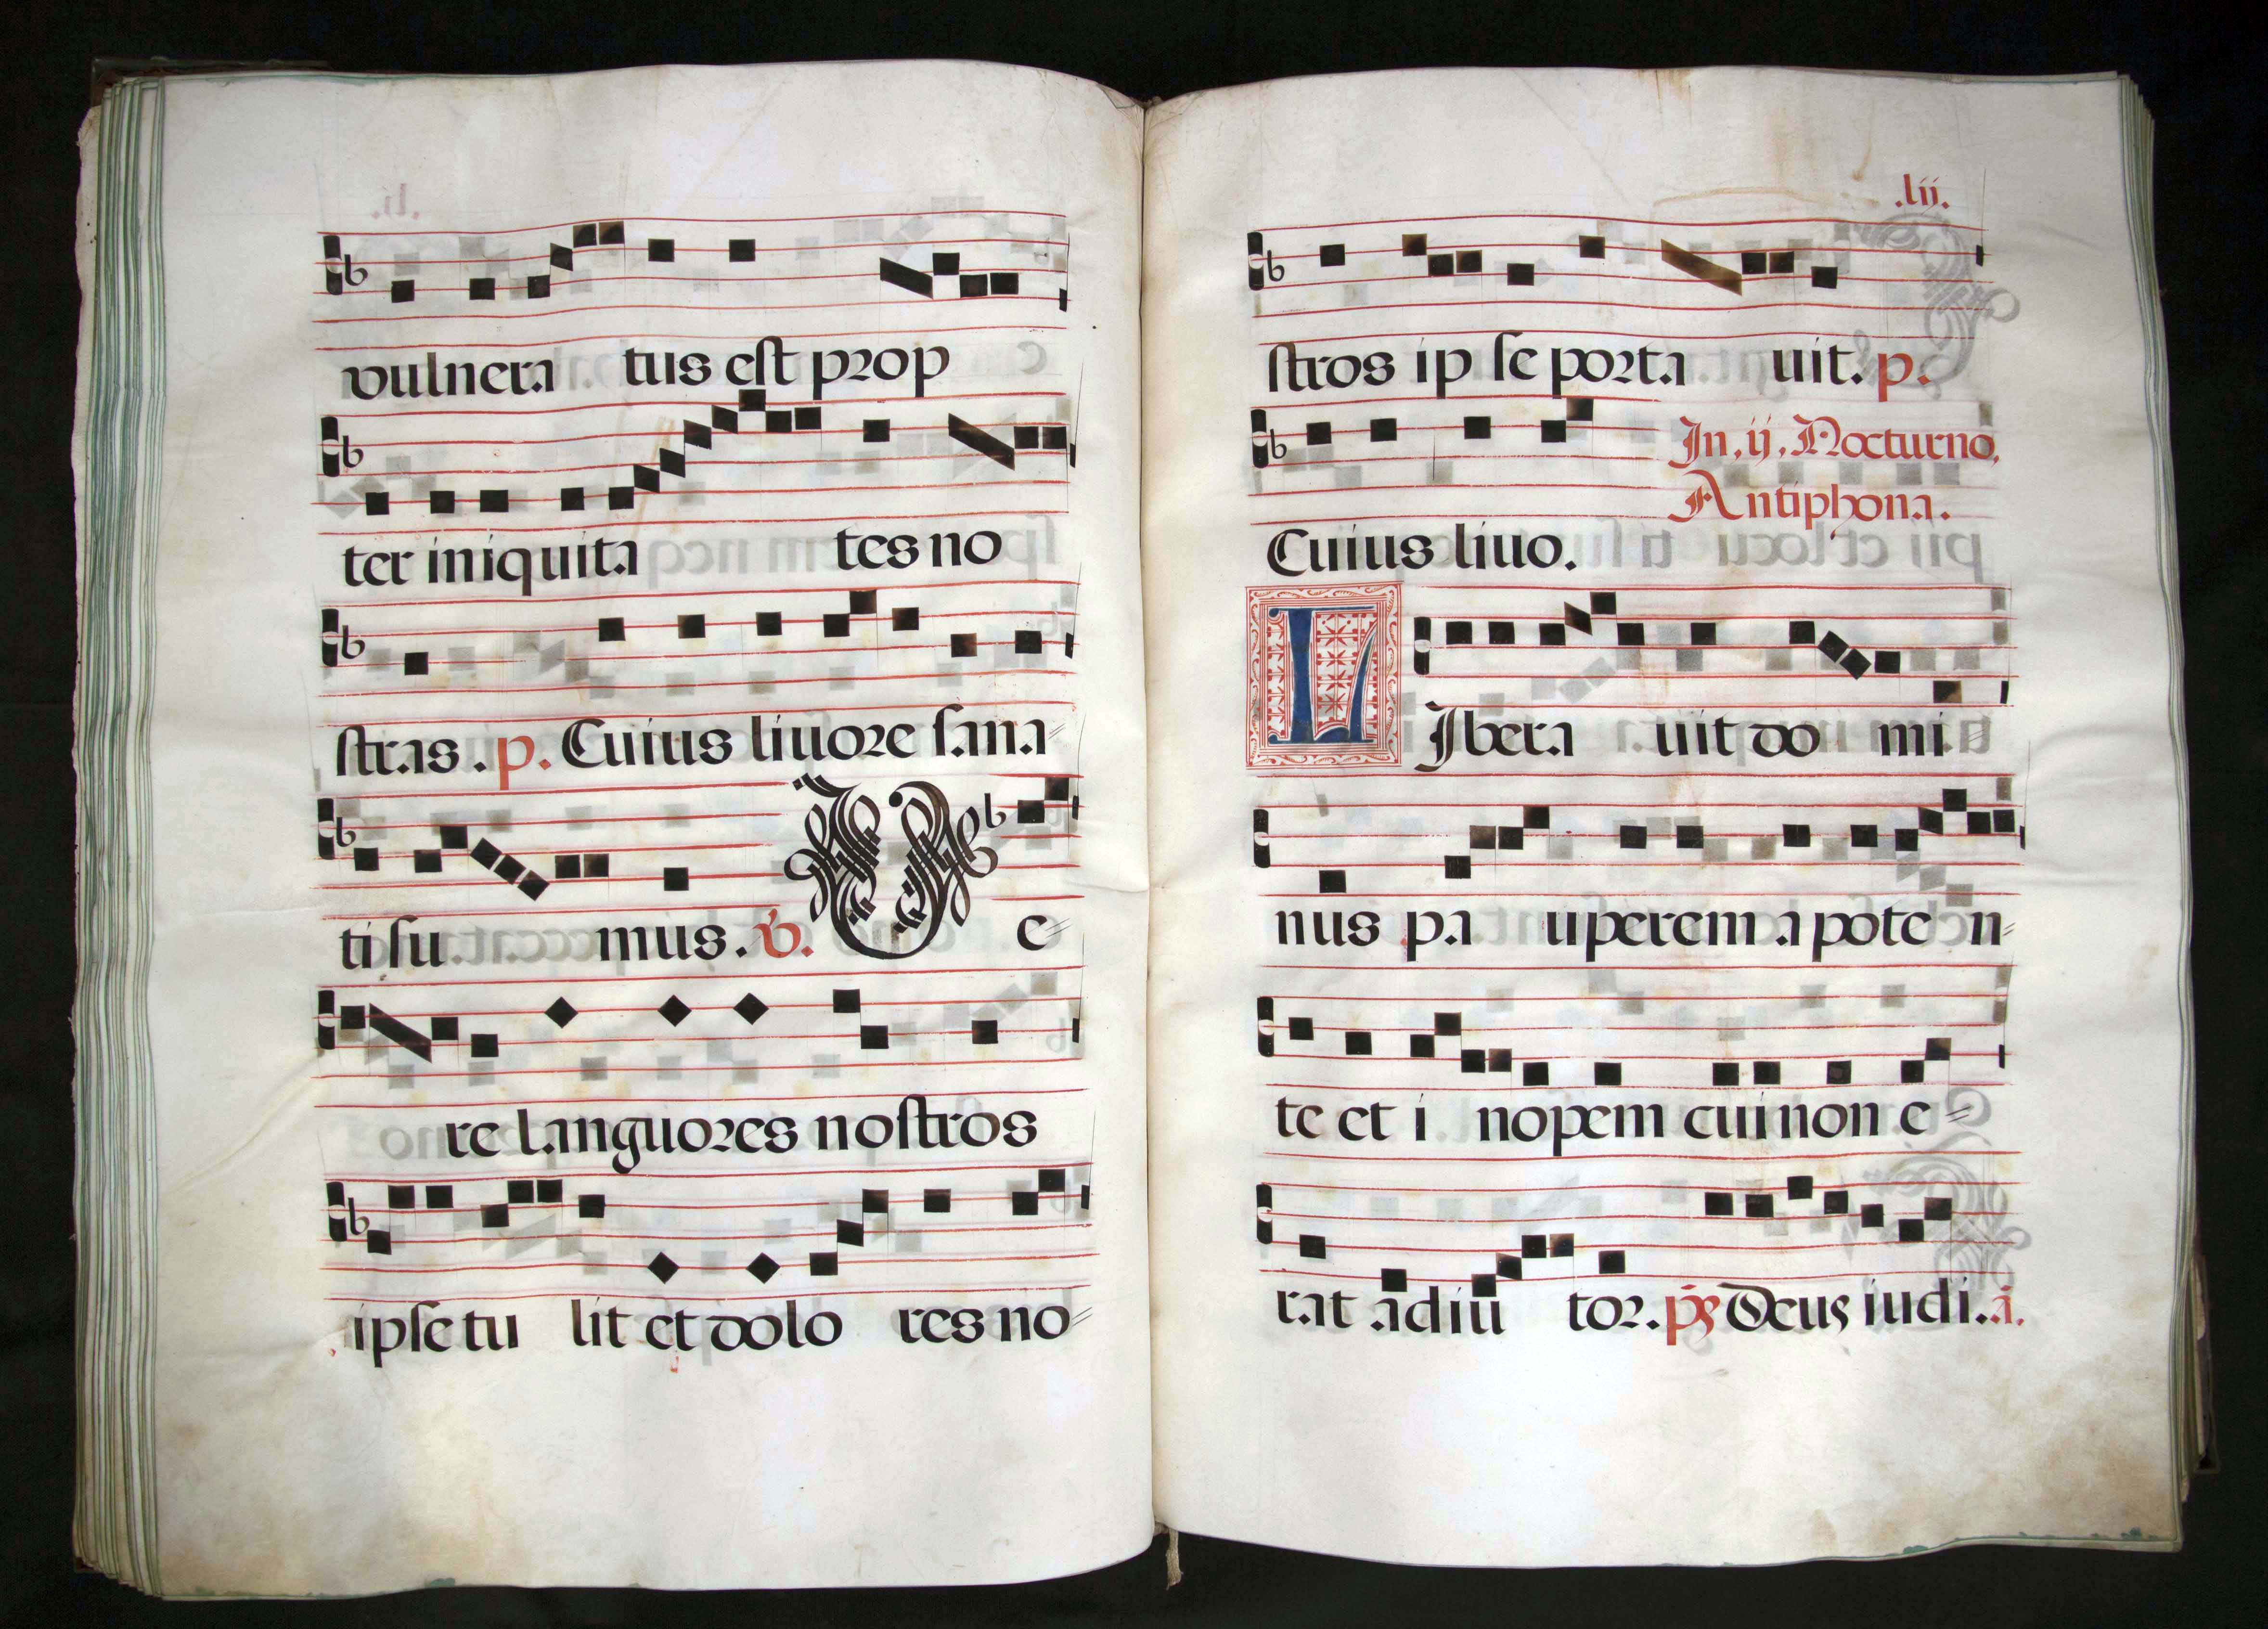 vulnera tus est prop
ter iniquita tes no
stras. p. Cuius liuore sana
ti su mus. v. V e
re languores nostros
ipse tu lit et dolo res no
.lii.
stros ip se porta uit. p.
In. ii. Nocturno.
Antiphona.
Cuius liuo.
LIbera uit do mi
nus pa uperem a pote n
te et i nopem cui non e
rat adiu tor. ps Deus iudi. a.